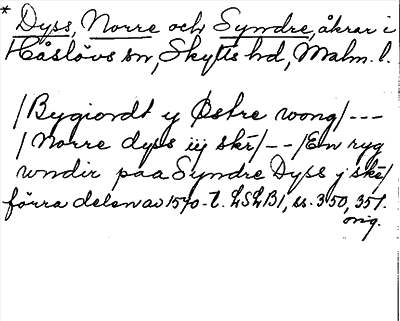 * Dyss, Norre och Syndre, åkrar i
Håslövs sn, Skytts hd, Malm. l.
/Bygiordt y Østre wong/---
/Norre dyss iij skr̄/--/En ryg
wndir paa Syndre Dyss j skr̄/
förra delen av 1570-t. LSLB1, ss. 350, 351.
orig.